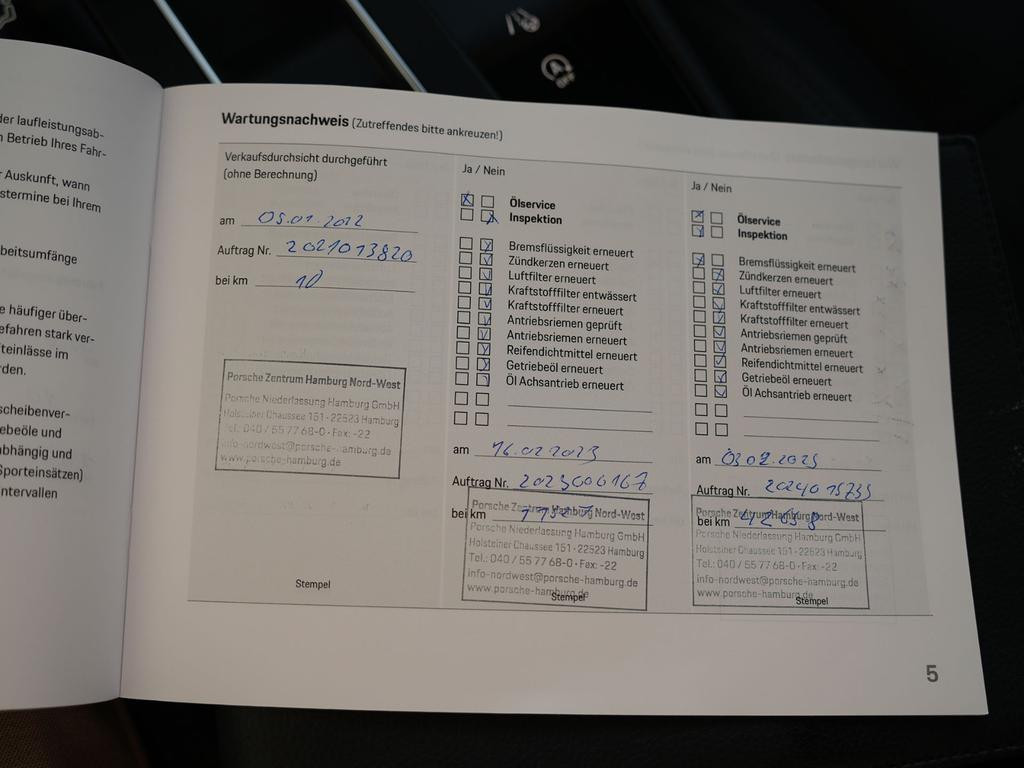 der laufleistungsab-
n Betrieb Ihres Fahr-
r Auskunft, wann
stermine bei Ihrem
beitsumfänge
e häufiger über-
efahren stark ver-
teinlässe im
rden.
scheibenver-
ebeöle und
abhängig und
Sporteinsätzen)
ntervallen
Wartungsnachweis (Zutreffendes bitte ankreuzen!)
Verkaufsdurchsicht durchgeführt
(ohne Berechnung)
am 05.01.2022
Auftrag Nr. 2021013820
bei km 10
Porsche Zentrum Hamburg Nord-West
Porsche Niederlassung Hamburg GmbH
Holsteiner Chaussee 151 · 22523 Hamburg
Tel.: 040 / 55 77 68-0 · Fax: -22
info-nordwest@porsche-hamburg.de
www.porsche-hamburg.de
Stempel
Ja / Nein
Ölservice
Inspektion
Bremsflüssigkeit erneuert
Zündkerzen erneuert
Luftfilter erneuert
Kraftstofffilter entwässert
Kraftstofffilter erneuert
Antriebsriemen geprüft
Antriebsriemen erneuert
Reifendichtmittel erneuert
Getriebeöl erneuert
Öl Achsantrieb erneuert
am 16.02.2023
Auftrag Nr. 2023000167
bei km
Porsche Zentrum Hamburg Nord-West
Porsche Niederlassung Hamburg GmbH
Holsteiner Chaussee 151 · 22523 Hamburg
Tel.: 040 / 55 77 68-0 · Fax: -22
info-nordwest@porsche-hamburg.de
www.porsche-hamburg.de
Stempel
Ja / Nein
Ölservice
Inspektion
Bremsflüssigkeit erneuert
Zündkerzen erneuert
Luftfilter erneuert
Kraftstofffilter entwässert
Kraftstofffilter erneuert
Antriebsriemen geprüft
Antriebsriemen erneuert
Reifendichtmittel erneuert
Getriebeöl erneuert
Öl Achsantrieb erneuert
am
Auftrag Nr. 2024015735
bei km
Porsche Zentrum Hamburg Nord-West
Porsche Niederlassung Hamburg GmbH
Holsteiner Chaussee 151 · 22523 Hamburg
Tel.: 040 / 55 77 68-0 · Fax: -22
info-nordwest@porsche-hamburg.de
www.porsche-hamburg.de
Stempel
5